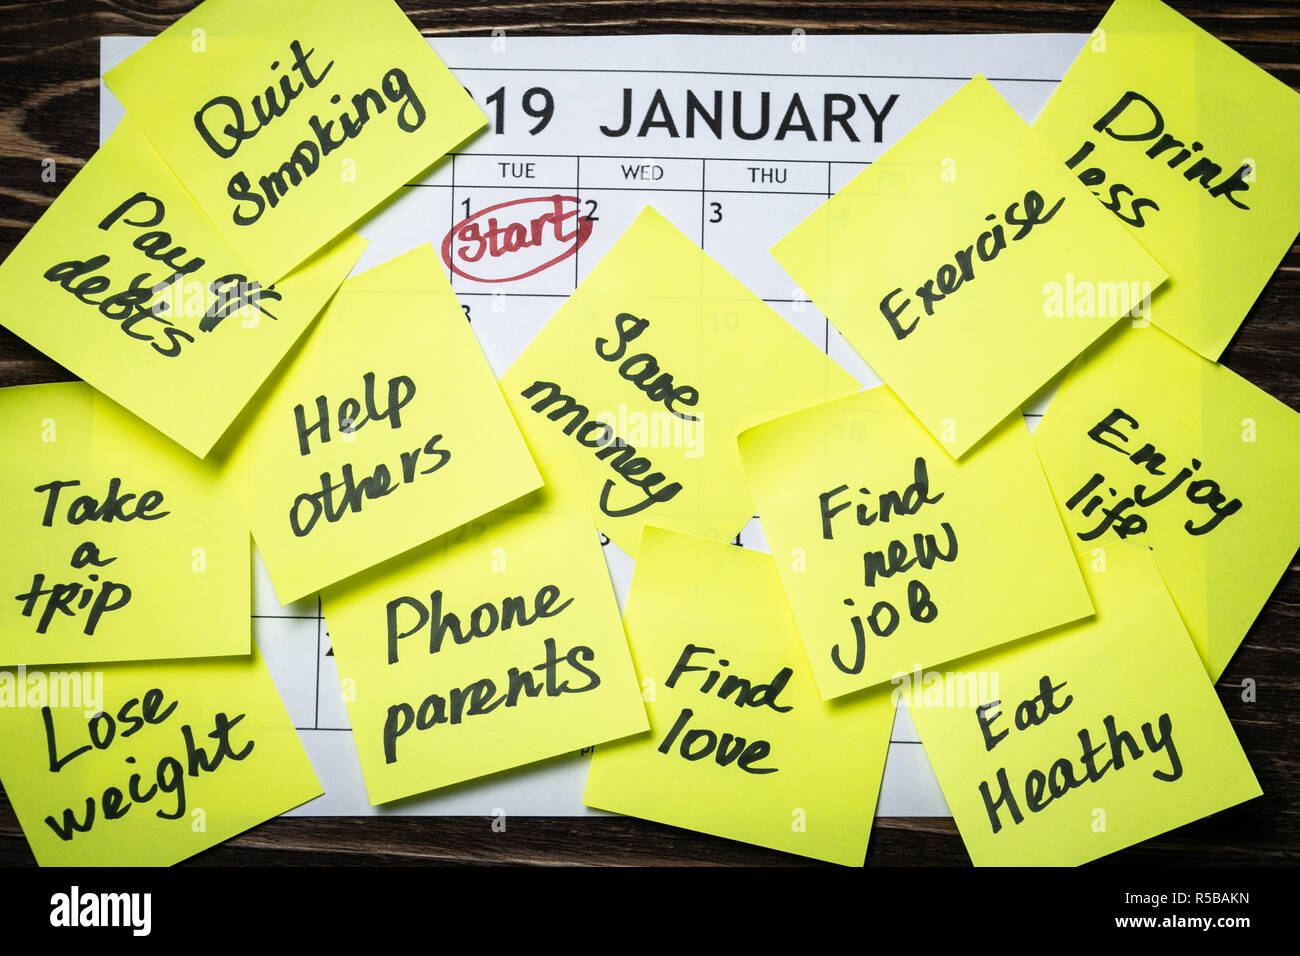 Quit
Smoking
019 JANUARY
TUE WED THU FRI
1 Start 2 3 4
Drink
less
Pay of
debts
Exercise
Save
money
Help
others
Enjoy
life
Take
a
trip
Find
new
job
Phone
parents
Find
love
Eat
Heathy
Lose
weight
8
9
10
18
alamy
alamy
Image ID: R5BAKN
www.alamy.com